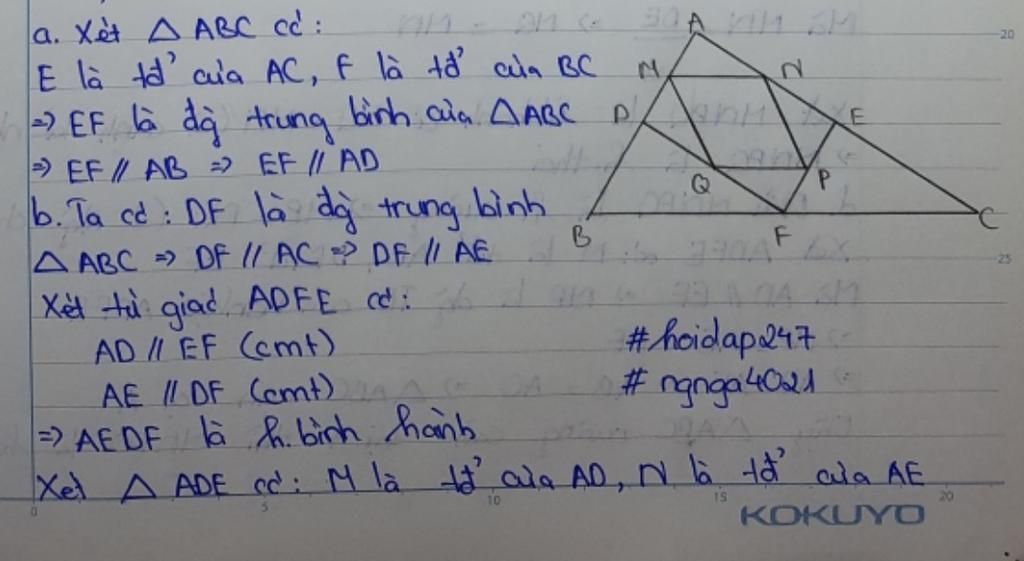 a. Xét △ ABC có:
E là tđ' của AC, F là tđ' của BC
=> EF là đg` trung bình của △ABC
=> EF // AB => EF // AD
b. Ta có: DF là đg` trung bình
△ ABC => DF // AC => DF // AE
Xét tứ giác ADFE có:
AD // EF (cmt)
AE // DF (cmt)
=> AEDF là h.bình hành
Xét △ ADE có: M là tđ' của AD, N là tđ' của AE
#hoidap247
# ngnga4021
A
M
N
D
E
Q
P
B
F
C
20
25
0
5
10
15
20
KOKUYO